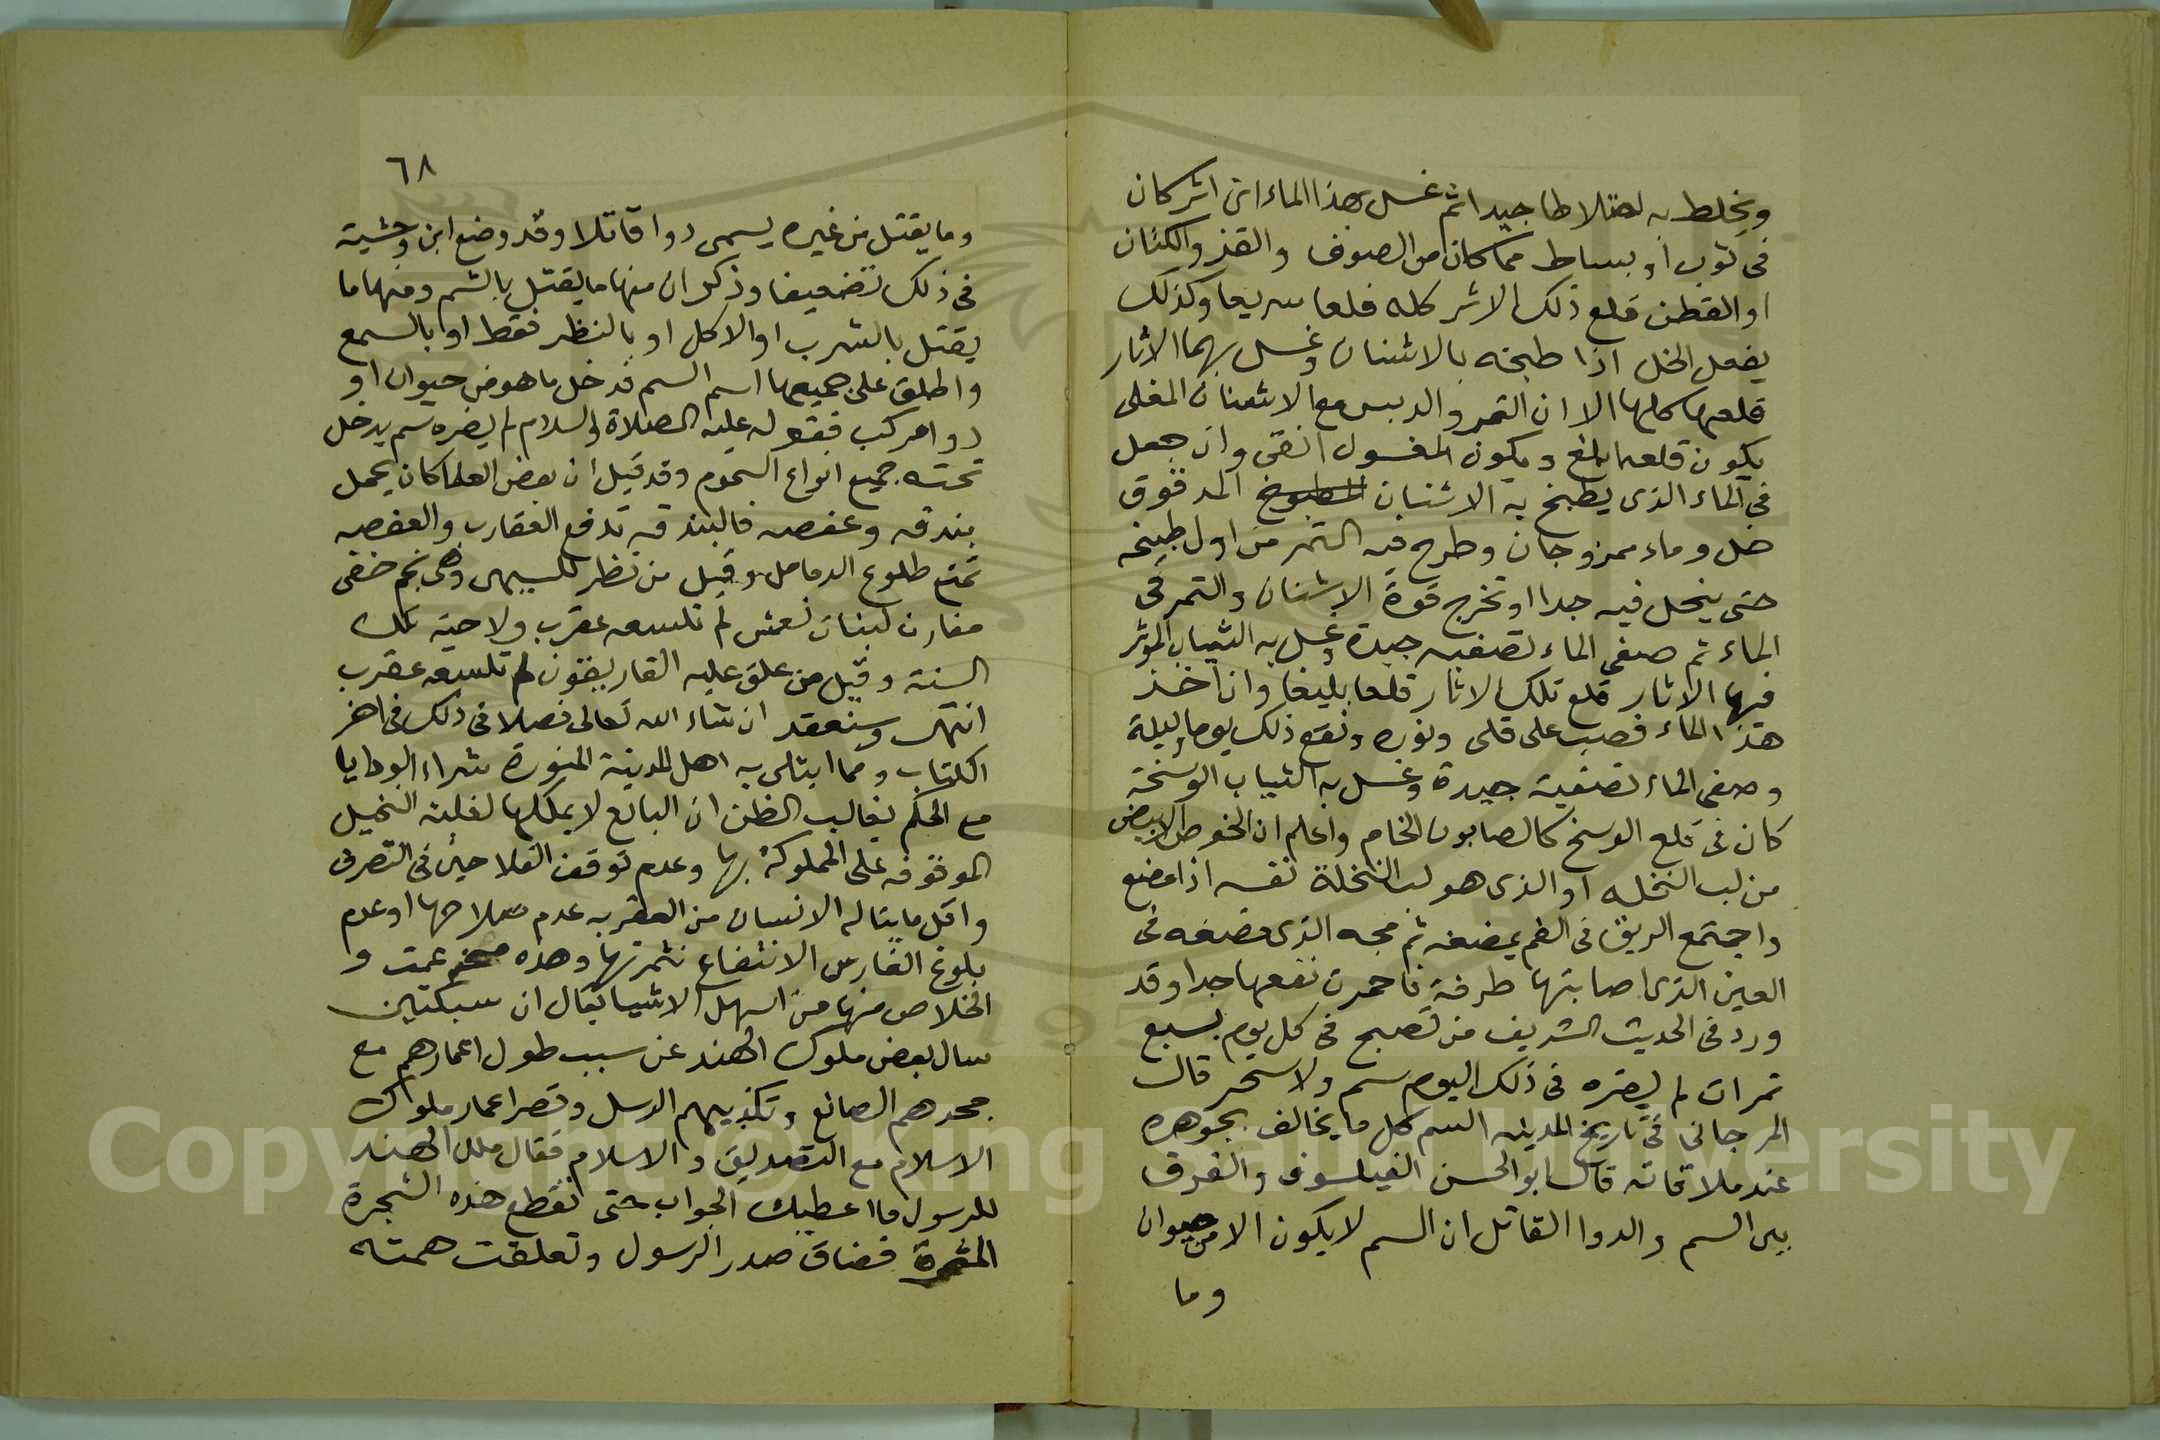 ويخلط به اختلاطا جيدا ثم غسل بهذا الماء اى اثر كان
فى ثوب او بساط مما كان من الصوف والقز والكتان
او القطن قلع ذلك الاثر كله قلعا سريعا وكذلك
يفعل الخل اذا طبخه بالاشنان وغسل بهما الاثار
قلعها كلها الا ان التمر والدبس مع الاشنان المغلى
يكون قلعه ابلغ ويكون المغسول انقى وان جعل
فى الماء الذى يطبخ به الاشنان المدقوق
خل وماء ممزوجان وطرح فيه التمر من اول طبخه
حتى ينحل فيه جدا او تخرج قوة الاشنان والتمر فى
الماء ثم صفى الماء تصفيه جيدة وغسل به الثياب المؤثر
فيها الاثار قلع تلك الاثار قلعا بليغا وان اخذ
هذا الماء فصب على قلى ونوره ونقع ذلك يوما وليلة
وصفى الماء تصفية جيدة وغسل به الثياب الوسخة
كان فى قلع الوسخ كالصابون الخام واعلم ان الخوص الابيض
من لب النخله او الذى هو لب النخلة نفسه اذا مضغ
واجتمع الريق فى الفم بمضغه ثم مجه الذى مضغه فى
العين الذى اصابتها طرفة فاحمرت نفعها جدا وقد
ورد فى الحديث الشريف من تصبح فى كل يوم بسبع
تمرات لم يضره فى ذلك اليوم سم ولا سحر قال
المرجانى فى تاريخ المدينه السم كل ما يخالف بجوهره
عند ملاقاته قال ابو الحسن الفيلسوف والفرق
بين السم والدوا القاتل ان السم لا يكون الا من حيوان
وما
٦٨
وما يقتل من غيره يسمى دوا قاتلا وقد وضع ابن وحشية
فى ذلك تضعيفا وذكر ان منها ما يقتل بالشم ومنها ما
يقتل بالشرب او الاكل او بالنظر فقط او بالسمع
واطلق على جميعها اسم السم فدخل ما هو من حيوان او
دوا مركب فقوله عليه الصلاة والسلام لم يضره سم يدخل
تحته جميع انواع السموم وقد قيل ان بعض العلما كان يحمل
بندقه وعفصه فالبندقه تدفع العقارب والعفصه
تمنع طلوع الدمامل وقيل من نظر للسهى وهى نجم خفى
مقارن لبنات نعش لم تلسعه عقرب ولا حية تلك
السنة وقيل من علق عليه الغاريقون لم تلسعه عقرب
انتهى وسنعقد ان شاء الله تعالى فصلا فى ذلك فى اخر
الكتاب ومما ابتلى به اهل المدينة المنورة شراء الودايا
مع الحكم بغالب الظن ان البائع لا يملكها لغلبة النخيل
الموقوفه على المملوكة بها وعدم توقف الفلاحين فى التصرف
واقل ما يناله الانسان من العقربه عدم صلاحها او عدم
بلوغ الغارس الانتفاع بثمرتها وهذه عمت و
الخلاص منها من اسهل الاشيا يقال ان سبكتين
سال بعض ملوك الهند عن سبب طول اعمارهم مع
جحدهم الصانع وتكذيبهم الرسل وقصر اعمار ملوك
الاسلام مع التصديق والاسلام فقال ملك الهند
للرسول ما اعطيك الجواب حتى تقطع هذه الشجرة
المثمرة فضاق صدر الرسول وتعلقت همته
Copyright © King Saud University